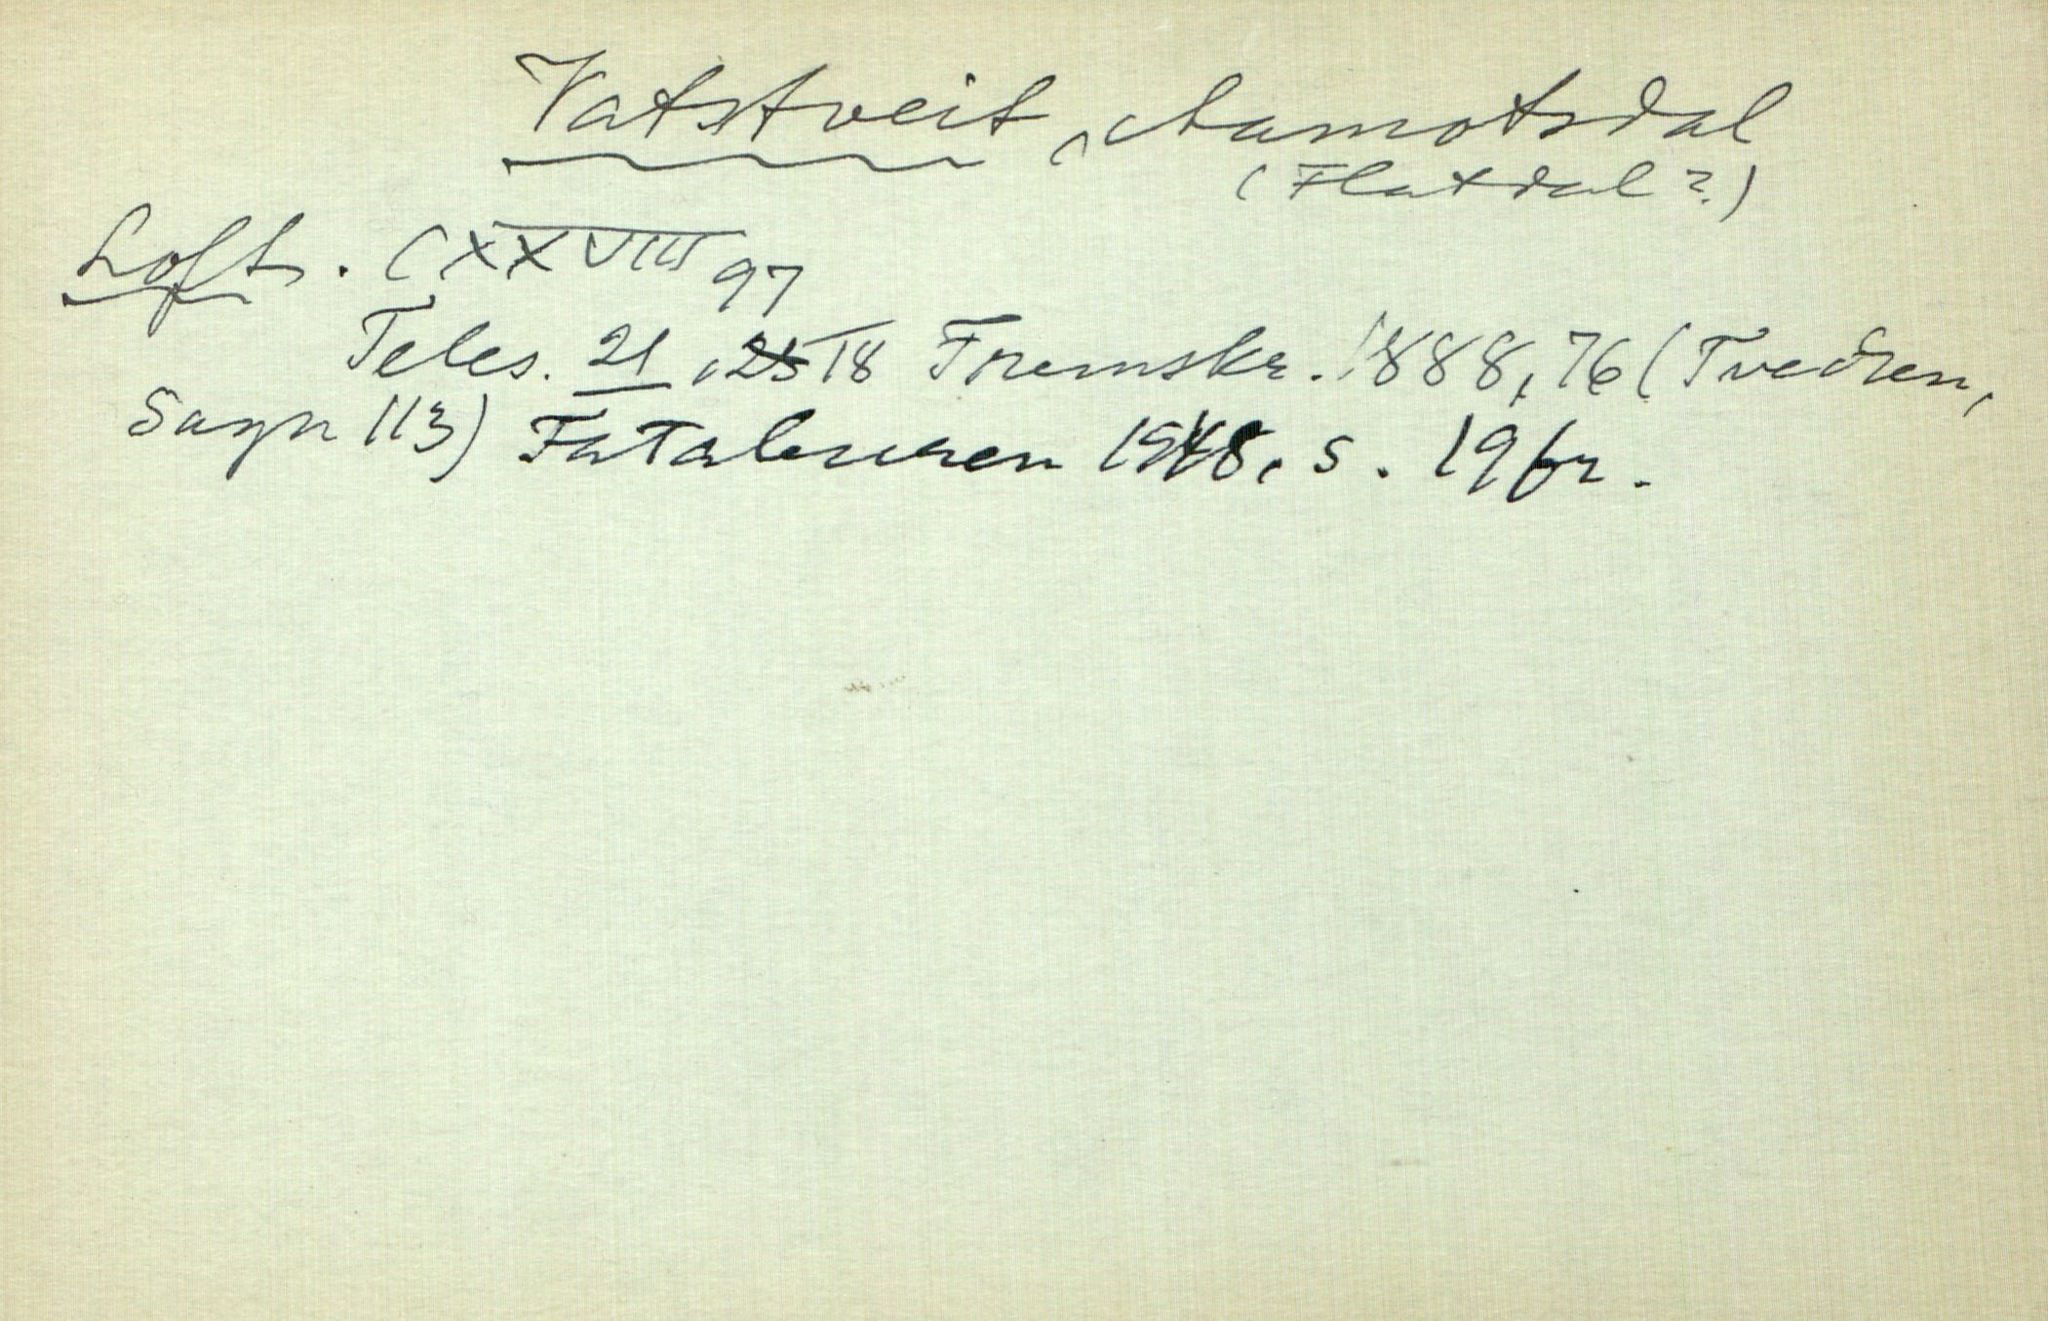 Vatstveit, Aamotsdal
(Flatdal?)
Loft. CXXVIII 97
Teles. 21, 25 18 Fremskr. 1888, 76 (Tvedten,
Sagn 113) Fataburen 1948, s. 19 fr.